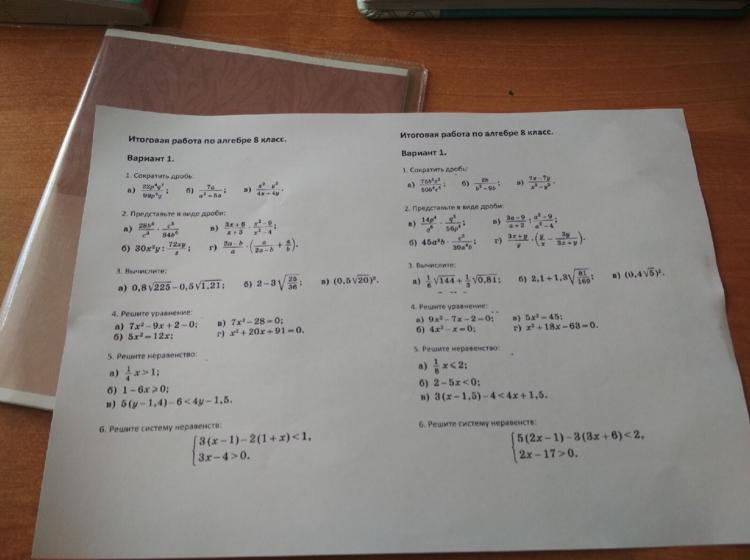 Итоговая работа по алгебре 8 класс.
Вариант 1.
1. Сократить дробь:
а) ; б) 7a/(a²+5a); в) (x²-y²)/(4x+4y).
2. Представьте в виде дроби:
а) 28b⁶/c³ · /84b⁶; в) (3x+6)/(x+3) · (x²-9)/(x²-4);
б) 30x²y : 72xy/z; г) (2a-b)/a · (a/(2a-b) + a/b).
3. Вычислите:
а) 0,8√225-0,5√1,21; б) 2-3√(25/36); в) (0,5√20)².
4. Решите уравнение:
а) 7x²-9x+2=0; в) 7x²-28=0;
б) 5x²=12x; г) x²+20x+91=0.
5. Решите неравенство:
а) 1/4 x>1;
б) 1-6x⩾0;
в) 5(y-1,4)-6<4y-1,5.
6. Решите систему неравенств:
{3(x-1)-2(1+x)<1,
3x-4>0.
Итоговая работа по алгебре 8 класс.
Вариант 1.
1. Сократить дробь:
а) ; б) 2b/(b²-9b); в) .
2. Представьте в виде дроби:
а) 14p⁴/q⁶ · /56p⁴; в) (3a-9)/(a+2) : (a²-9)/(a²-4);
б) 45a²b · /30a⁴b; г) (3x+y)/y · (y/x - 3y/(3x+y)).
3. Вычислите:
а) 1/6 √144+1/3 √0,81; б) 2,1+1,3√(81/169); в) (0,4√5)².
4. Решите уравнение:
а) 9x²-7x-2=0; в) 5x²=45;
б) 4x²-x=0; г) x²+18x-63=0.
5. Решите неравенство:
а) 1/6 x⩽2;
б) 2-5x<0;
в) 3(x-1,5)-4<4x+1,5.
6. Решите систему неравенств:
{5(2x-1)-3(3x+6)<2,
2x-17>0.